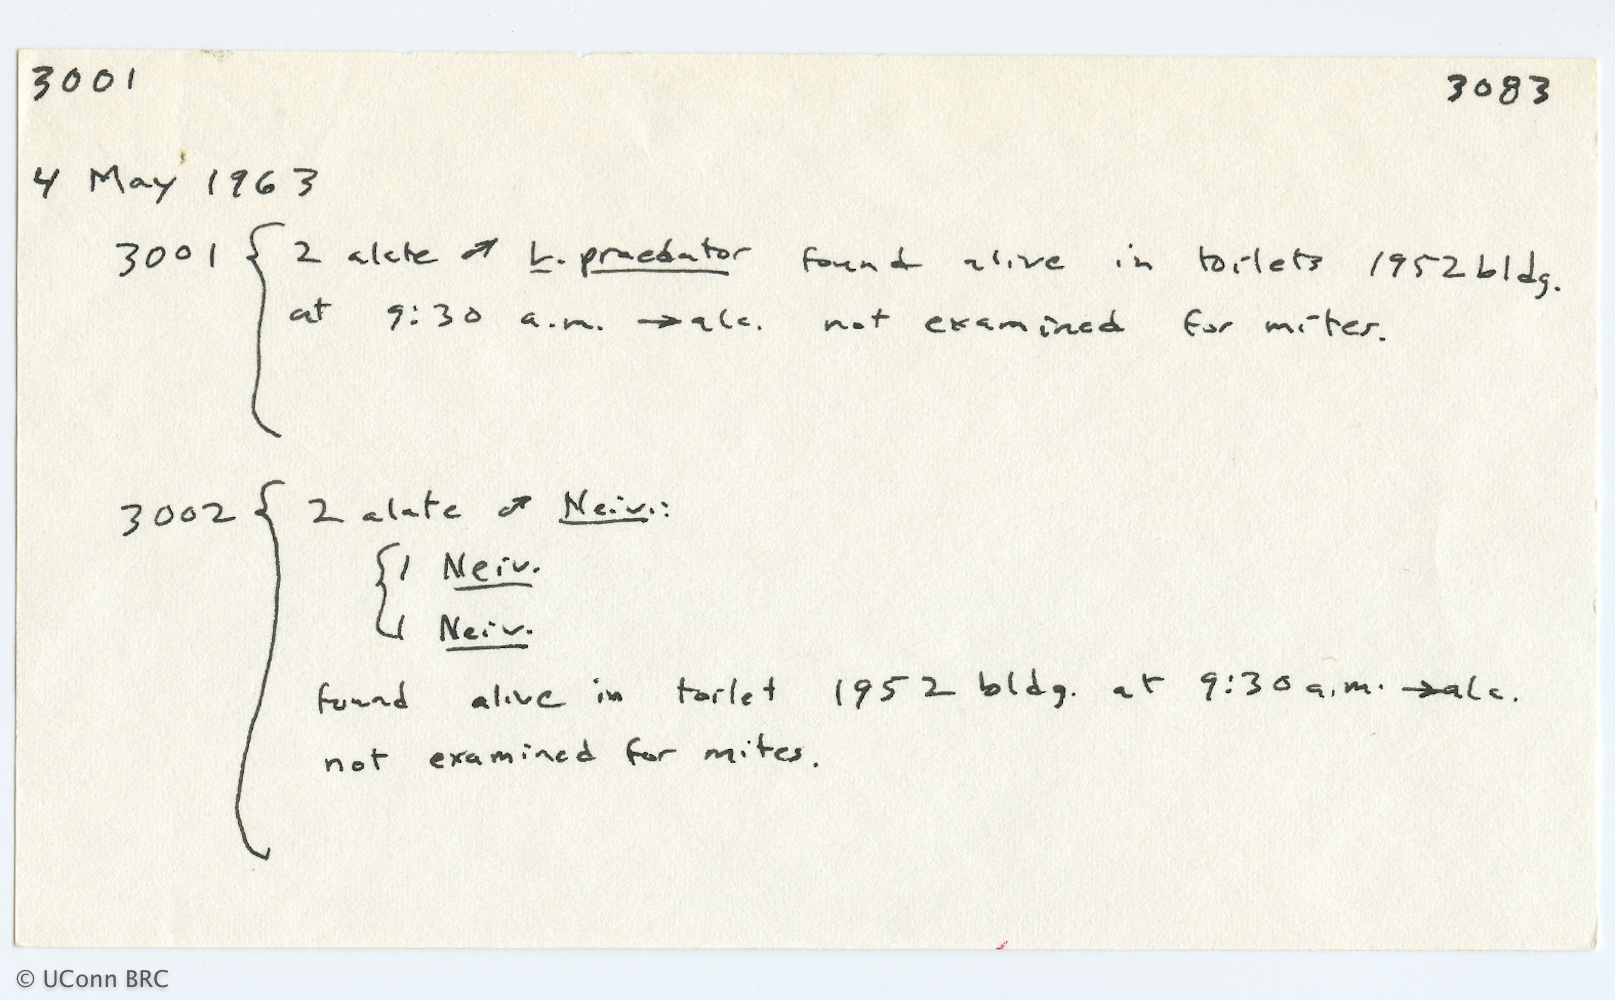 3001 3083
4 May 1963
3001 { 2 alate ♂ L. praedator found alive in toilets 1952 bldg.
at 9:30 a.m. → alc. not examined for mites.
3002 { 2 alate ♂ Neiv.:
{ 1 Neiv.
1 Neiv.
found alive in toilet 1952 bldg. at 9:30 a.m. → alc.
not examined for mites.
© UConn BRC